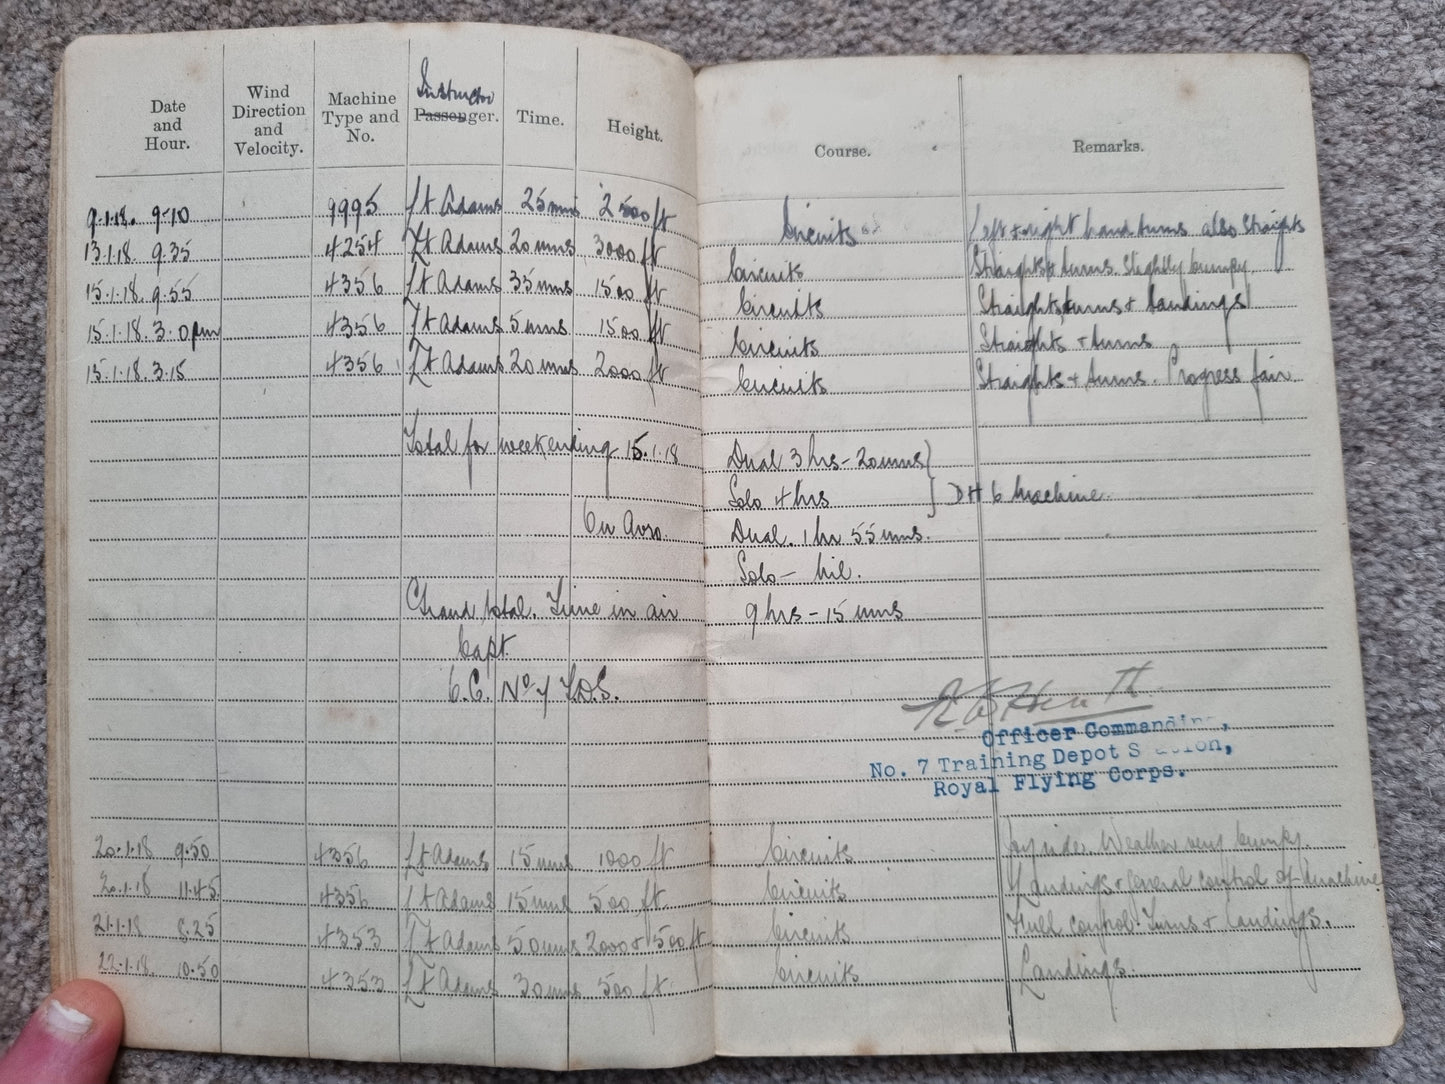 Date and Hour. Wind Direction and Velocity. Machine Type and No. Instructor Passenger. Time. Height. Course. Remarks.
9.1.18. 9-10 9995 Lt Adams 25 mins 2500 ft Circuits Left & right hand turns also straights
13.1.18. 9.35 4254 Lt Adams 20 mins 3000 ft Circuits Straights & turns. Slightly bumpy.
15.1.18. 9.55 4356 Lt Adams 35 mins 1500 ft Circuits Straights turns & landings
15.1.18. 3.0 pm 4356 Lt Adams 5 mins 1500 ft Circuits Straights & turns
15.1.18. 3.15 4356 Lt Adams 20 mins 2000 ft Circuits Straights & turns. Progress fair.
Total for week ending 15.1.18 Dual 3 hrs - 20 mins
Solo 4 hrs DH 6 Machine.
On Avro. Dual. 1 hr 55 mins.
Solo - nil.
Grand total. Time in air 9 hrs - 15 mins
Capt
C.O. No 7 T.D.S.
Officer Commanding,
No. 7 Training Depot Station,
Royal Flying Corps.
20.1.18 9.50 4356 Lt Adams 15 mins 1000 ft Circuits Joy ride. Weather very bumpy.
20.1.18 11.45 4356 Lt Adams 15 mins 500 ft. Circuits Landings & General control of machine
21.1.18 8.25 4353 Lt Adams 50 mins 2000 & 500 ft Circuits Full control. Turns & landings.
22.1.18. 10.50 4353 Lt Adams 30 mins 500 ft. Circuits Landings.